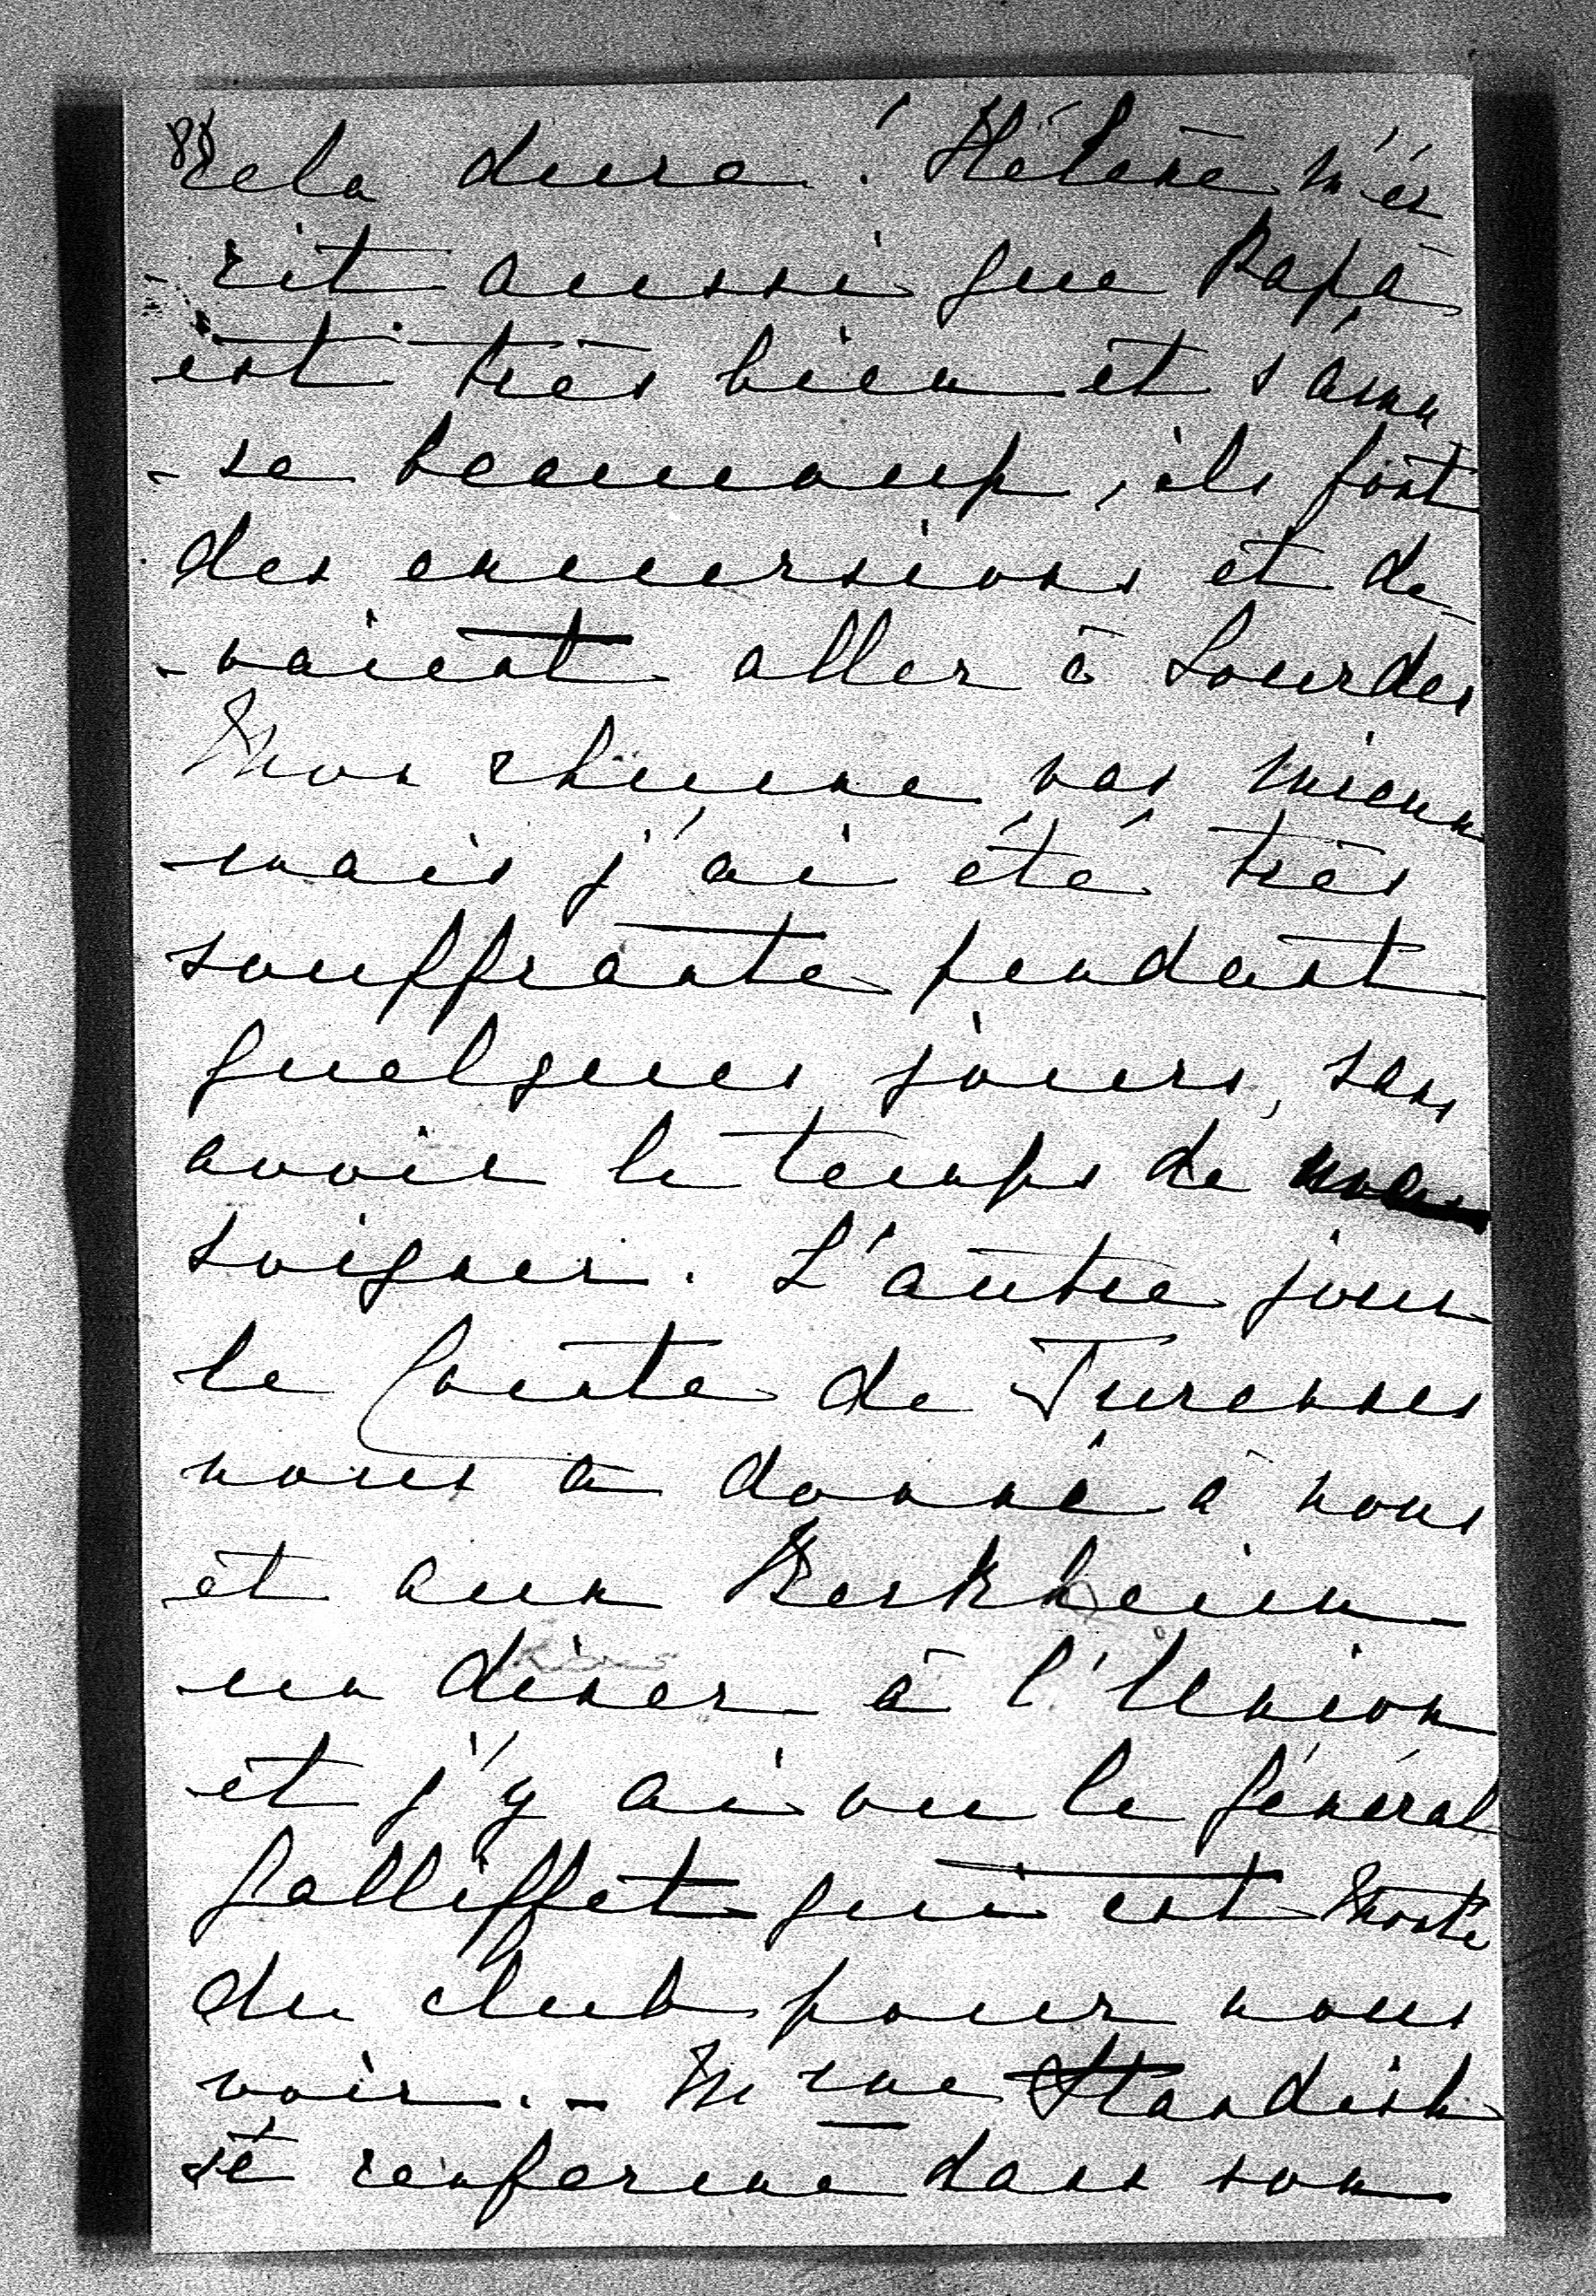 cela dure! Hélène m'éc
-rit aussi que Papa
est très bien et s'amu
-se beaucoup, ils font
des excursions et de
-vaient aller à Lourdes
Mon rhume vas mieux
mais j'ai été très
souffrante pendant
quelques jours, sans
avoir le temps de
soigner. L'autre jour
le Comte de Turennes
nous a donné à nous
et aux Berkheim
un diner à l'Union
et j'y ai vu le général
Galliffet qui est monté
du club pour nous
voir. - Mme Standish
se renferme dans son